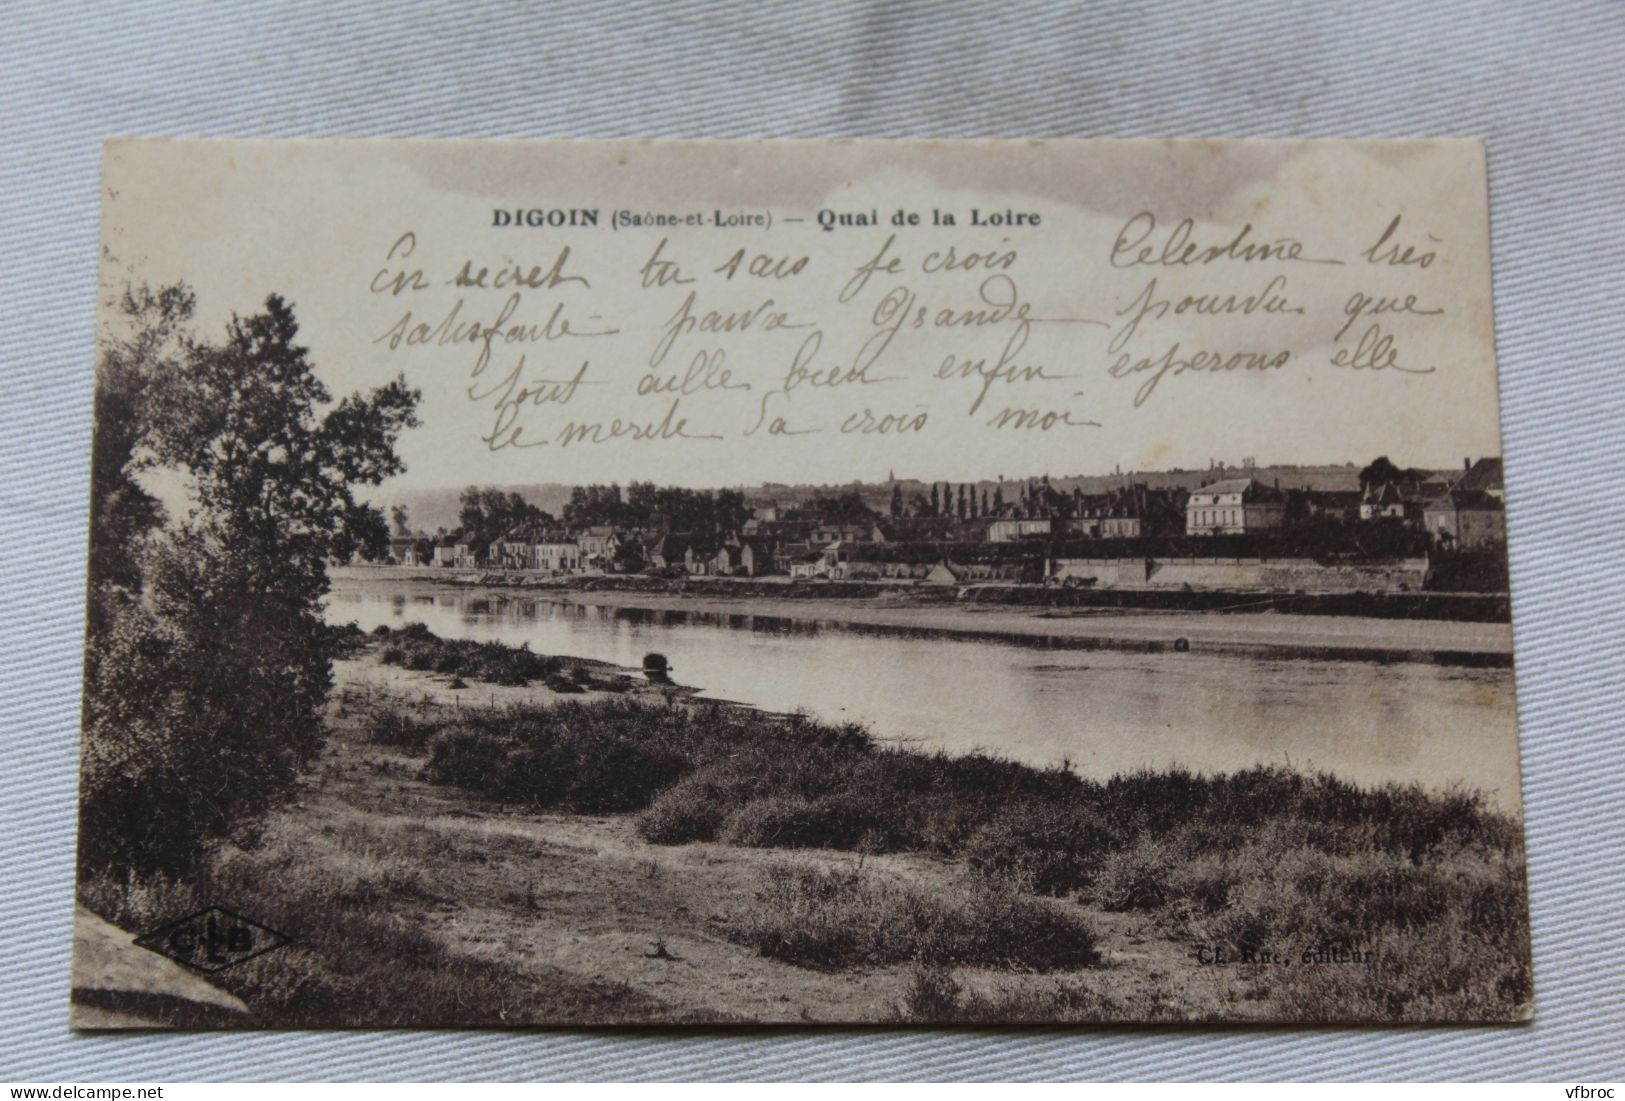 DIGOIN (Saône-et-Loire) — Quai de la Loire
En secret tu sais je crois Celestine très
satisfaite pauvre Grande pourvu que
tout aille bien enfin esperons elle
le merite Sa crois moi
CLB
Cl. Rue, éditeur
vfbroc